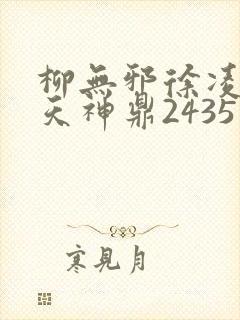 柳無邪徐凌
天神鼎2435
寒見月